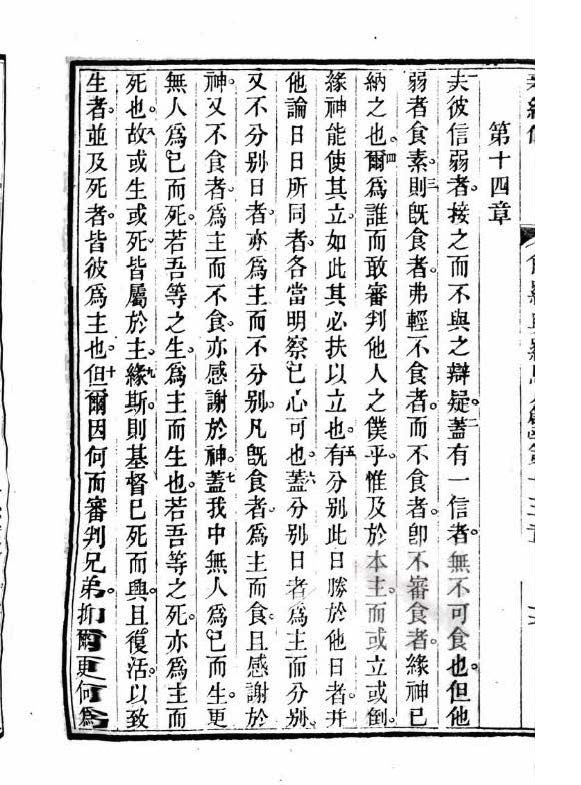 第十四章
夫彼信弱者。接之而不與之辯疑。二蓋有一信者。無不可食也。但他
弱者食素。三則既食者。弗輕不食者。而不食者。即不審食者。緣神已
納之也。四爾為誰而敢審判他人之僕乎。惟及於本主。而或立或倒。
緣神能使其立。如此其必扶以立也。五有分別此日勝於他日者。并
他論日日所同者。各當明察己心可也。六蓋分別日者為主而分別。
又不分別日者。亦為主而不分別。凡既食者。為主而食。且感謝於
神。又不食者。為主而不食。亦感謝於神。七蓋我中無人為己而生。更
無人為己而死。八若吾等之生。為主而生也。若吾等之死。亦為主而
死也。故或生或死。皆屬於主。九緣斯。則基督已死而興。且復活。以致
生者。並及死者。皆彼為主也。十但爾因何而審判兄弟。抑爾更何為